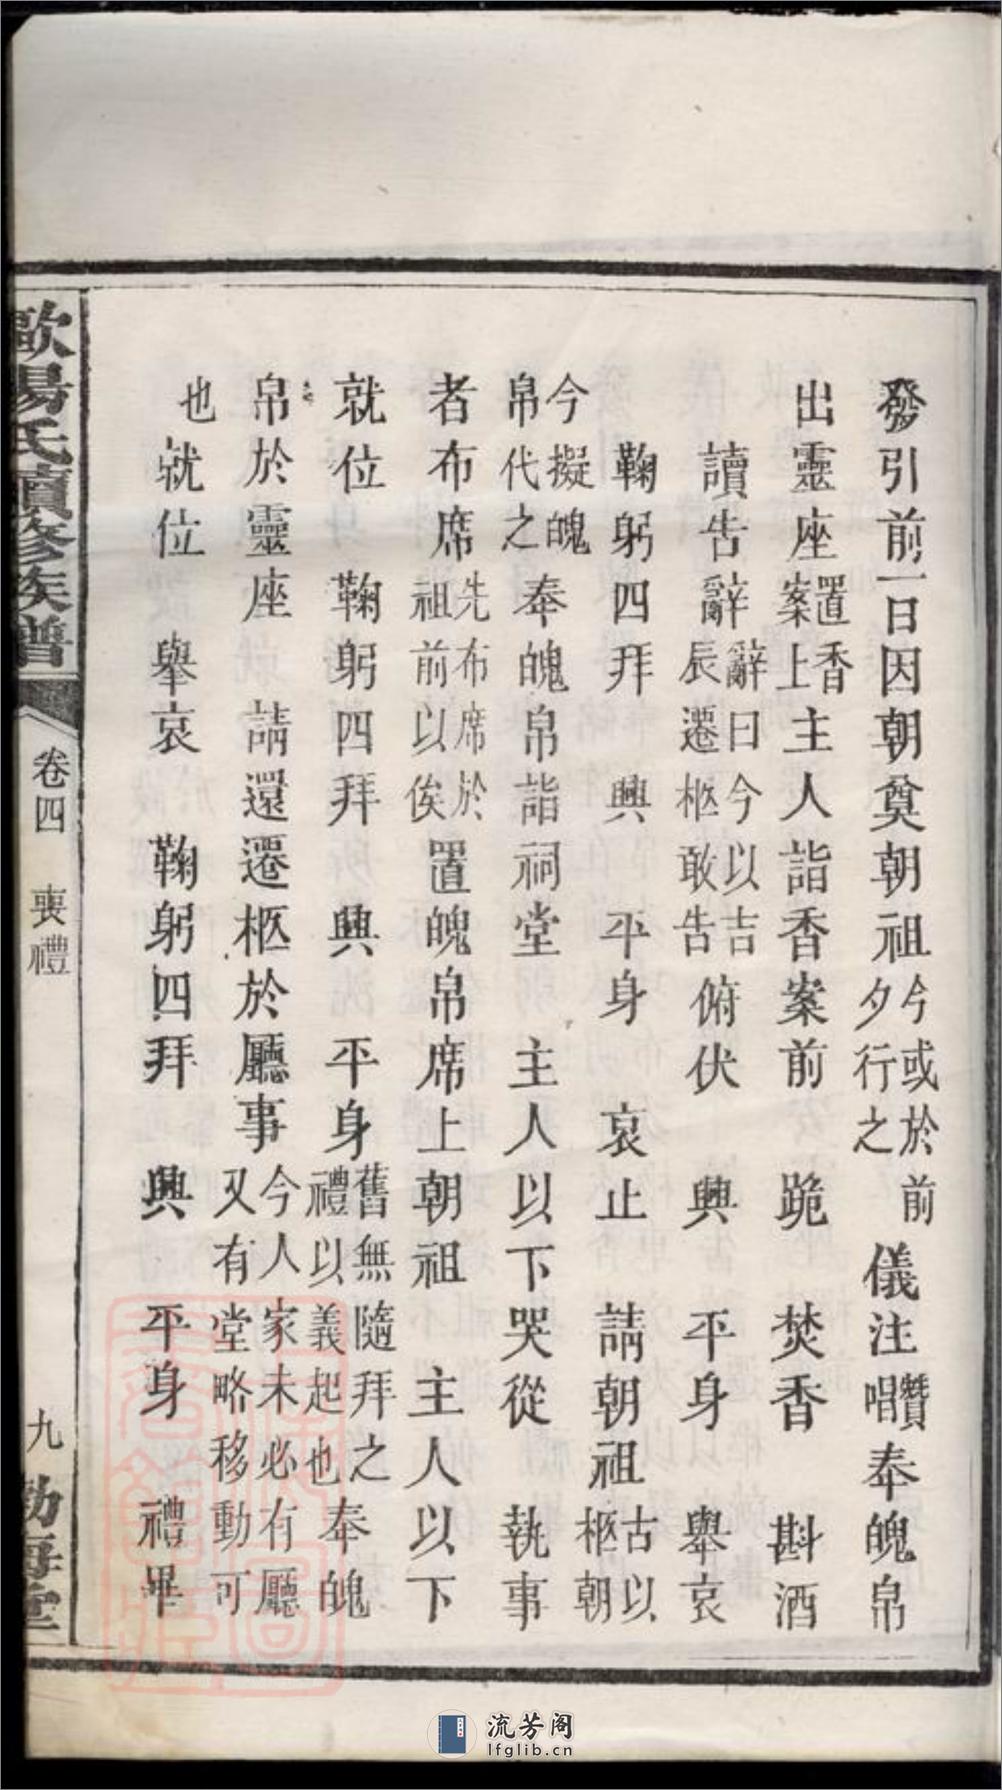 發引前一日因朝奠朝祖今或於前夕行之儀注贊唱奉魄帛
出靈座置香案上主人詣香案前　跪　焚香　斟酒
讀告辭辭曰今以吉辰遷柩敢告俯伏　興　平身　舉哀
鞠躬四拜　興　平身　哀止　請朝祖古以柩朝
今擬魄帛代之奉魄帛詣祠堂　主人以下哭從　執事
者布席先布席於祖前以俟置魄帛席上朝祖　主人以下
就位　鞠躬四拜　興　平身舊無隨拜之禮以義起也奉魄
帛於靈座　請還遷柩於廳事今人家未必有廳又有堂略移動可
也就位　舉哀　鞠躬四拜　興　平身　禮畢
歐陽氏續修族譜
卷四　喪禮
九
流芳阁
lfglib.cn